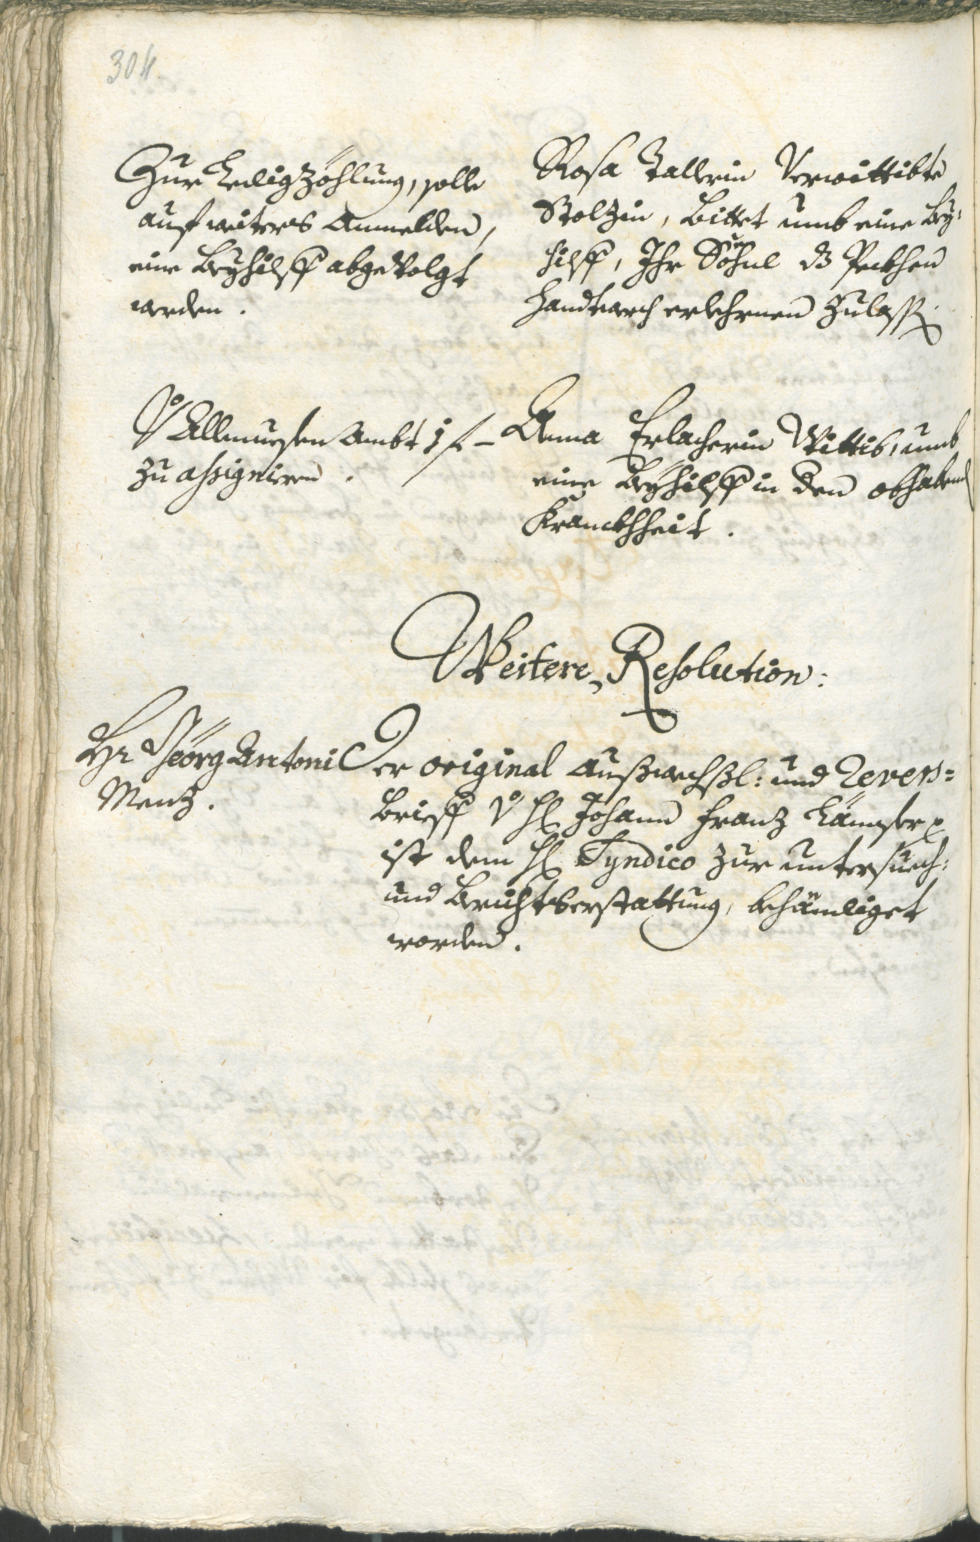 304
Zur Ledigzöhlung, solle
auf weiters Anmelden,
eine Beyhilff abgevolgt
werden.
Rosa Tallerin Verwittibte
Stolzin, Bittet umb eine Bey:
hilff, Ihr Söhnl d Peckhen
Handtwerch erlehrnen zulass
Allmuesen Ambt 1 f –
zu assigniren.
Anna Erlacherin Wittib, umb
eine Beyhilff in den obhabend
Kranckhheit.
Weitere Resolution:
Hr Georg Antoni
Menz.
Der original Außwechßl: und Revers=
Brieff H Johann Franz
ist dem H Syndico zur untersuech:
und Berichtserstattung, behändiget
worden.